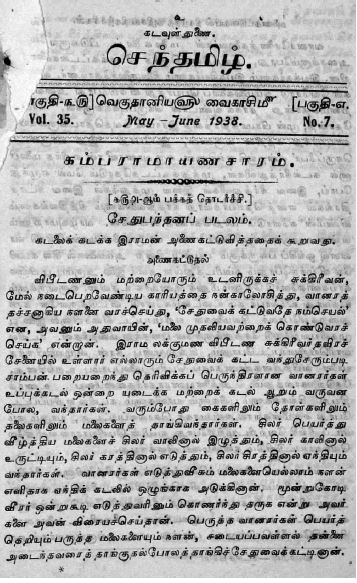 உ
கடவுள் துணை.
செந்தமிழ்.
தொகுதி-௩௫] வெகுதானிய௵ வைகாசிமீ [பகுதி-எ.
Vol. 35. May – June 1938. No. 7.
கம்பராமாயணசாரம்.
பக்கத் தொடர்ச்சி.]
சேதுபந்தனப் படலம்.
கடலைக் கடக்க இராமன் அணைகட்டுவித்ததைக் கூறுவது.
அணைகட்டுதல்
விபீடணனும் மற்றையோரும் உடனிருக்கச் சுக்கிரீவன்,
மேல் நடைபெறவேண்டிய காரியத்தை நன்காலோசித்து, வானரத்
தச்சனாகிய நளனை வரச்செய்து, 'சேதுவைக் கட்டுவதே நம்செயல்'
என, அவனும் அதுவாயின், 'மலை முதலியவற்றைக் கொண்டுவரச்
செய்க' என்றான். இராம லக்குமண விபீடண சுக்கிரீவர் தவிரச்
சேனையில் உள்ளார் எல்லாரும் சேதுவைக் கட்ட வந்துசேரும்படி
சாம்பன் பறையறைந்து தெரிவிக்கப் பெருந்திரளான வானரர்கள்
உப்புக்கடல் ஒன்றை யுடைக்க மற்றைக் கடல் ஆறும் வருவன
போல, வந்தார்கள். வரும்போது கைகளிலும் தோள்களிலும்
தலைகளிலும் மலைகளைத் தாங்கிவந்தார்கள். சிலர் பெயர்த்து
வீழ்த்திய மலைகளைச் சிலர் வாலினால் இழுத்தும், சிலர் காலினால்
உருட்டியும், சிலர் கரத்தினால் எடுத்தும், சிலர் சிரத்தினால் ஏந்தியும்
வந்தார்கள். வானரர்கள் எடுத்துவீசும் மலைகளையெல்லாம் நளன்
எளிதாக ஏந்திக் கடலில் ஒழுங்காக அடுக்கினான். மூன்றுகோடி
வீரர் ஒன்று கூடி எடுத்துவரினும் கொணர்ந்து தருக என்று அவர்
களை அவன் விரையச்செய்தான். பெருத்த வானரர்கள் பெயர்த்
தெறியும் பருத்த மலைகளையும் நளன், சடையப்பவள்ளல் தன்னை
அடைந்தவரைத் தாங்குதல்போலத் தாங்கிச் சேதுவைக்கட்டினான்.
*